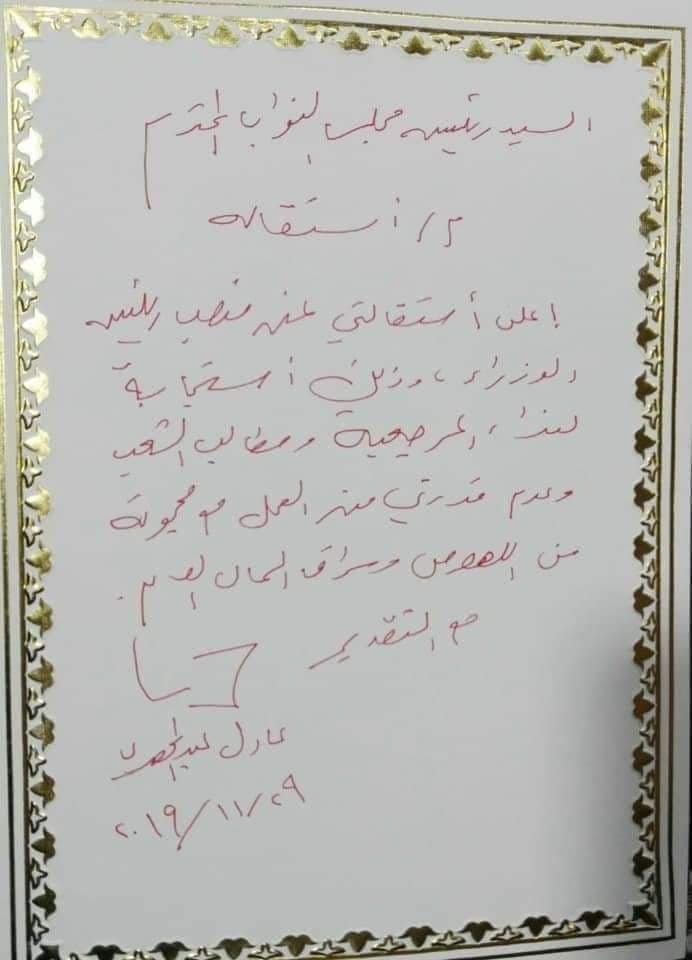 السيد رئيس مجلس النواب المحترم
م/ أستقاله
إعلن أستقالتي من منصب رئيس
الوزراء، وذلك أستجابة
لنداء المرجعية ومطالب الشعب
وعدم قدرتي من العمل مع مجموعة
من اللصوص وسراق المال العام.
مع التقدير
عادل عبد المهدي
٢٠١٩/١١/٢٩